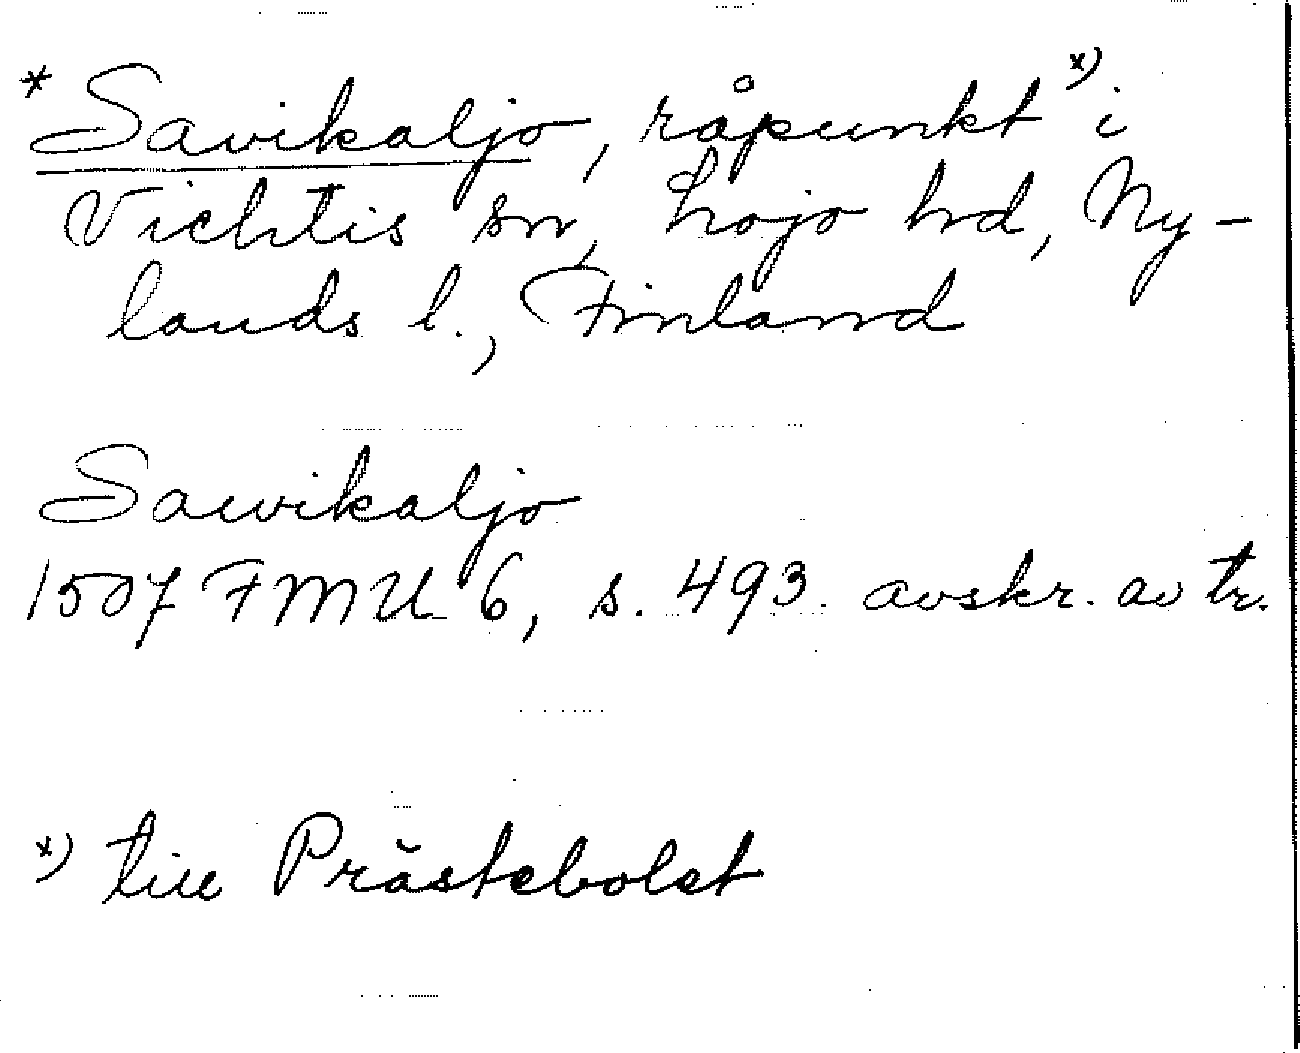 * Savikaljo, råpunkt x) i
Vichtis sn, Lojo hd, Ny-
lands l., Finland
Sawikaljo
1507 FMU 6, s. 493. avskr. av tr.
x) till Prästebolet